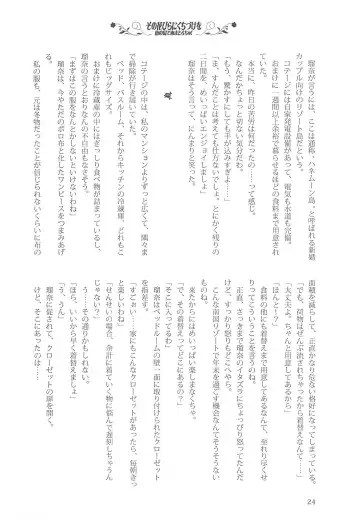 瑠奈が言うには、ここは通称、ハネムーン島と呼ばれる新婚
カップル向けのリゾート島だという。
コテージには自家発電設備があって、電気も水道も完備。
おまけに一週間以上余裕で暮らせるほどの食料まで用意され
ていた。
本当に、昨日の苦労は何だったの……って感じ。
なんだかちょっと切ない気分だわ。
「もう、驚かすにしても手が込みすぎよ……」
「まあ、すんだことは考えても仕方ないでしょ、とにかく残りの
二日間を、めいっぱいエンジョイしましょ」
瑠奈はそう言って、にんまりと笑った。
コテージの中は、私のマンションよりずっと広くて、隅々ま
で掃除が行き届いていた。
ベッド、バスルーム、それからキッチンの冷蔵庫、どれもこ
れもビッグサイズ。
おまけに冷蔵庫の中にはぎっしり食べ物が詰まっていて、
瑠奈の言うとおりなんの不自由もなさそう。
「まずはこの服をなんとかしないといけないわね」
瑠奈は、今やただのボロ布と化したワンピースをつまみあげ
た。
私の服も、元は冬物だったことが信じられないくらいに布の
面積を減らして、正直かなり危ない格好になってしまっている。
「でも、荷物はぜんぶ流されちゃったから着替えなんて……」
「大丈夫よ、ちゃんと用意してあるから」
「ほんとー？」
食料の他にも着替えまで用意してあるなんて、至れり尽くせ
りってこういうことを言うのね。
正直、さっきまで瑠奈のイタズラにちょっぴり怒ってたんだ
けど、すっかり怒りもどこへやら。
こんな南国リゾートで年末を過ごす機会なんてそうそうない
ものね。
来たからにはめいっぱい楽しまなくちゃ。
「で、その着替えってどこにあるの？」
「そこに入ってるわ」
瑠奈はベッドルームの壁一面に取り付けられたクローゼット
を指差す。
「すごぉい……家にもこんなクローゼットがあったら、毎朝きっ
と楽しいわね」
「せんせいの場合、余計に着ていく物に悩んで遅刻しちゃうん
じゃない？」
「……その通りかもしれない」
「ほら、いいから早く着替えましょ」
「う、うん」
瑠奈に促されて、クローゼットの扉を開く。
けど、そこにあったのは……
24